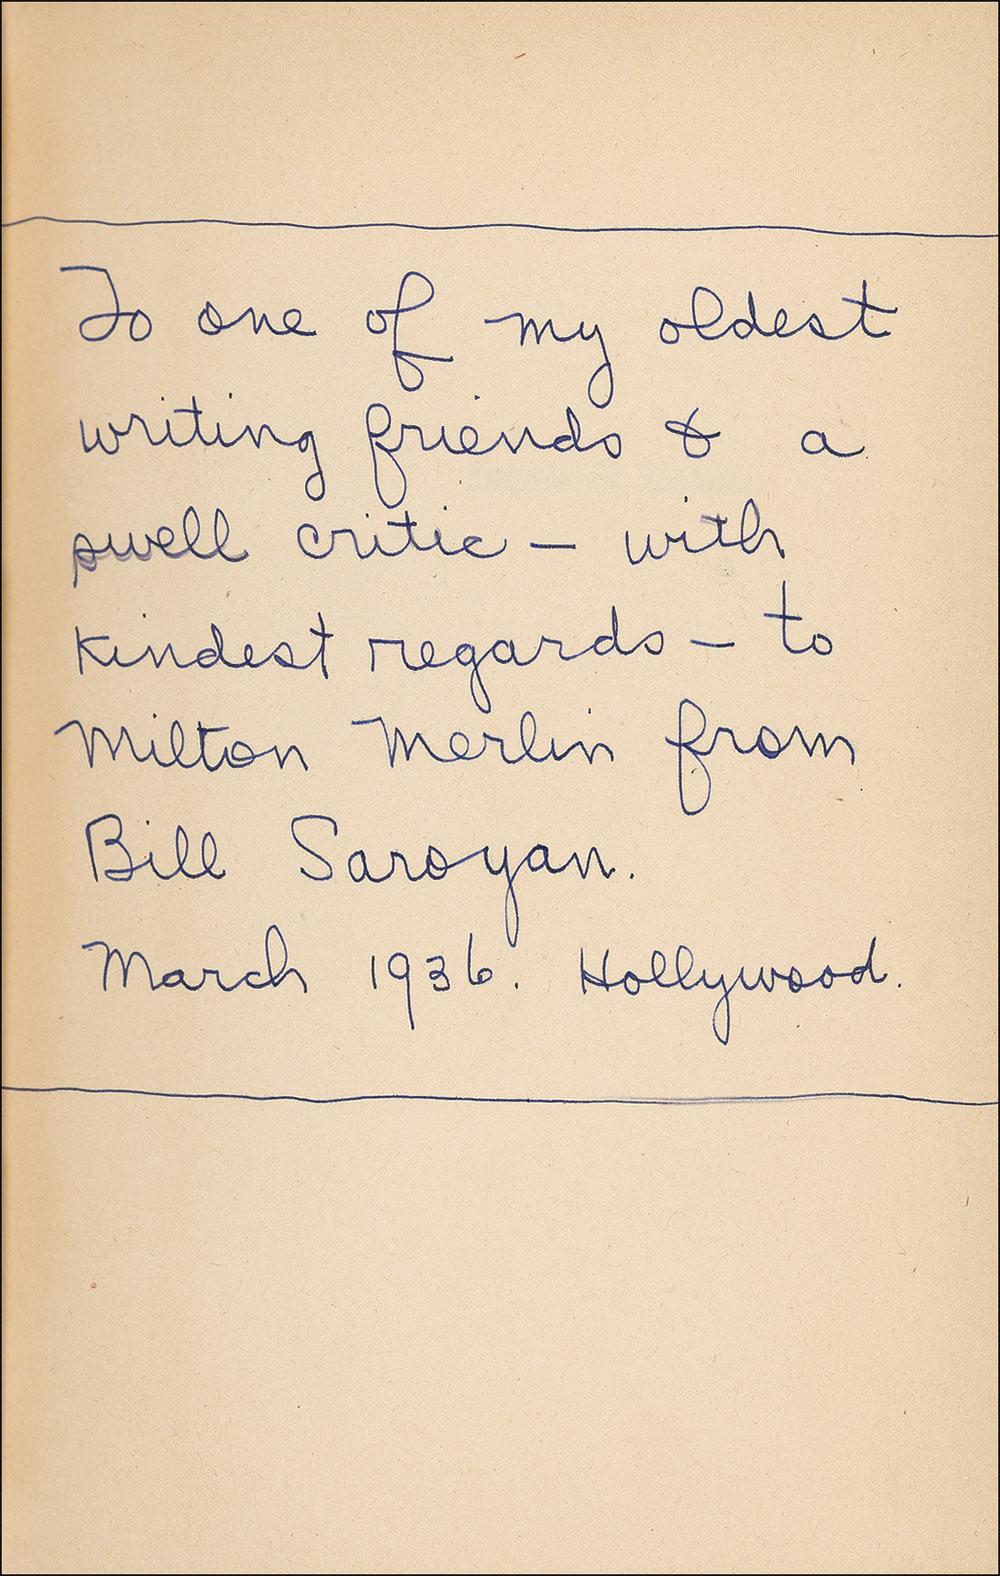 To one of my oldest
writing friends & a
swell critic — with
kindest regards — to
Milton Merlin from
Bill Saroyan.
March 1936. Hollywood.